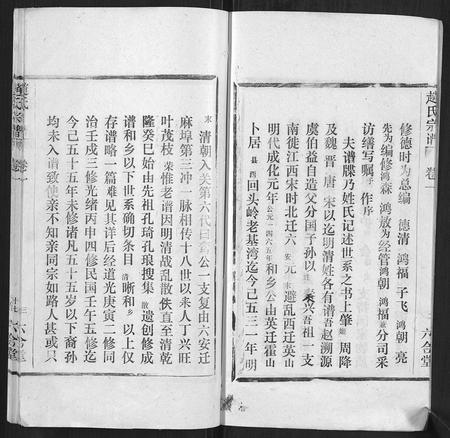 趙氏宗譜 卷一
六合堂
修德时为总编 德清 鸿福 子飞 鸿朝 亮
先为编修鸿森 鸿敖为经管鸿朝 鸿福兼分司采
访缮写嘱予作序
夫谱牒乃姓氏记述世系之书上肇 周降
及魏晋唐宋以迄明清姓各有谱吾赵溯源
虞伯益自造父分国子孙以 兴吾祖一支
南徙江西宋时北迁六安元末避乱西迁英山
明代成化元年公元一四六五年和乡公由英迁霍山
卜居县西回头岭老基湾迄今己五三一年明
末清朝入关第六代 公一支复由六安迁
麻埠第三冲一脉相传十八世以来人丁兴旺
叶茂枝荣惟老谱因明清战乱散佚直至清乾
隆癸巳始由先祖孔琦孔琅搜集散遗创修成
谱和乡以下世系确切条目清晰和乡以上仅
存谱略一篇难见其详后经道光庚寅二修同
治壬戍三修光绪丙申四修民国壬午五修迄
今己五十五年未修诸凡五十五岁以下裔孙
均未入谱致使亲不知亲同宗如路人甚或只
趙氏宗譜 卷一
三
六合堂